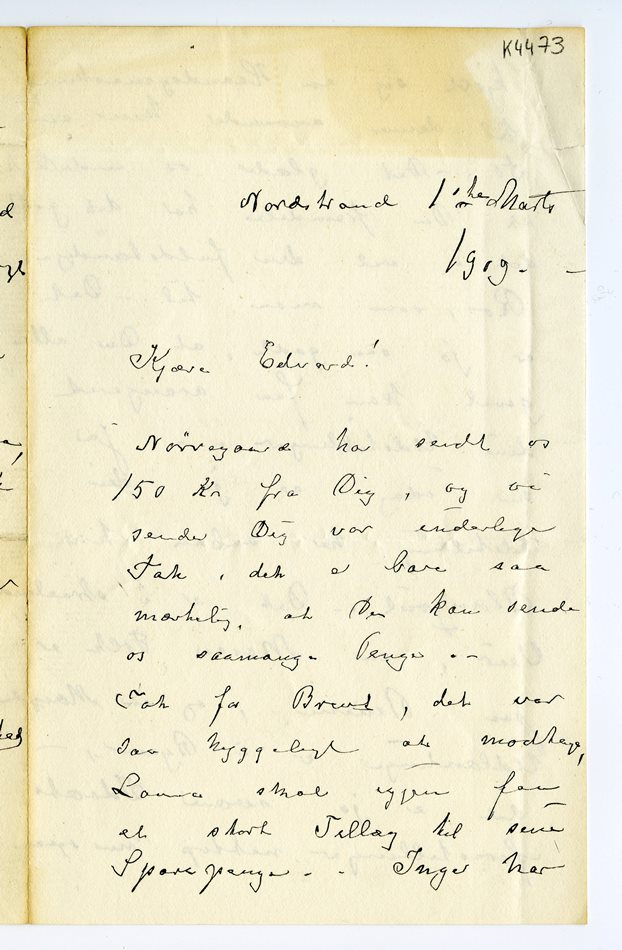 K4473
Nordstrand 1ste Marts
1909. –
Kjære Edvard!
Nørregaard har sendt os
150 Kr fra Dig, og vi
sender Dig vor inderlige
Tak, det er bare saa
mærkelig, at Du kan sende
os saamange Penge. –
Tak for Brevet, det var
saa hyggeligt at modtage,
Laura skal igjen faa
et stort Tillæg til sine
Sparepenge. – Inger har